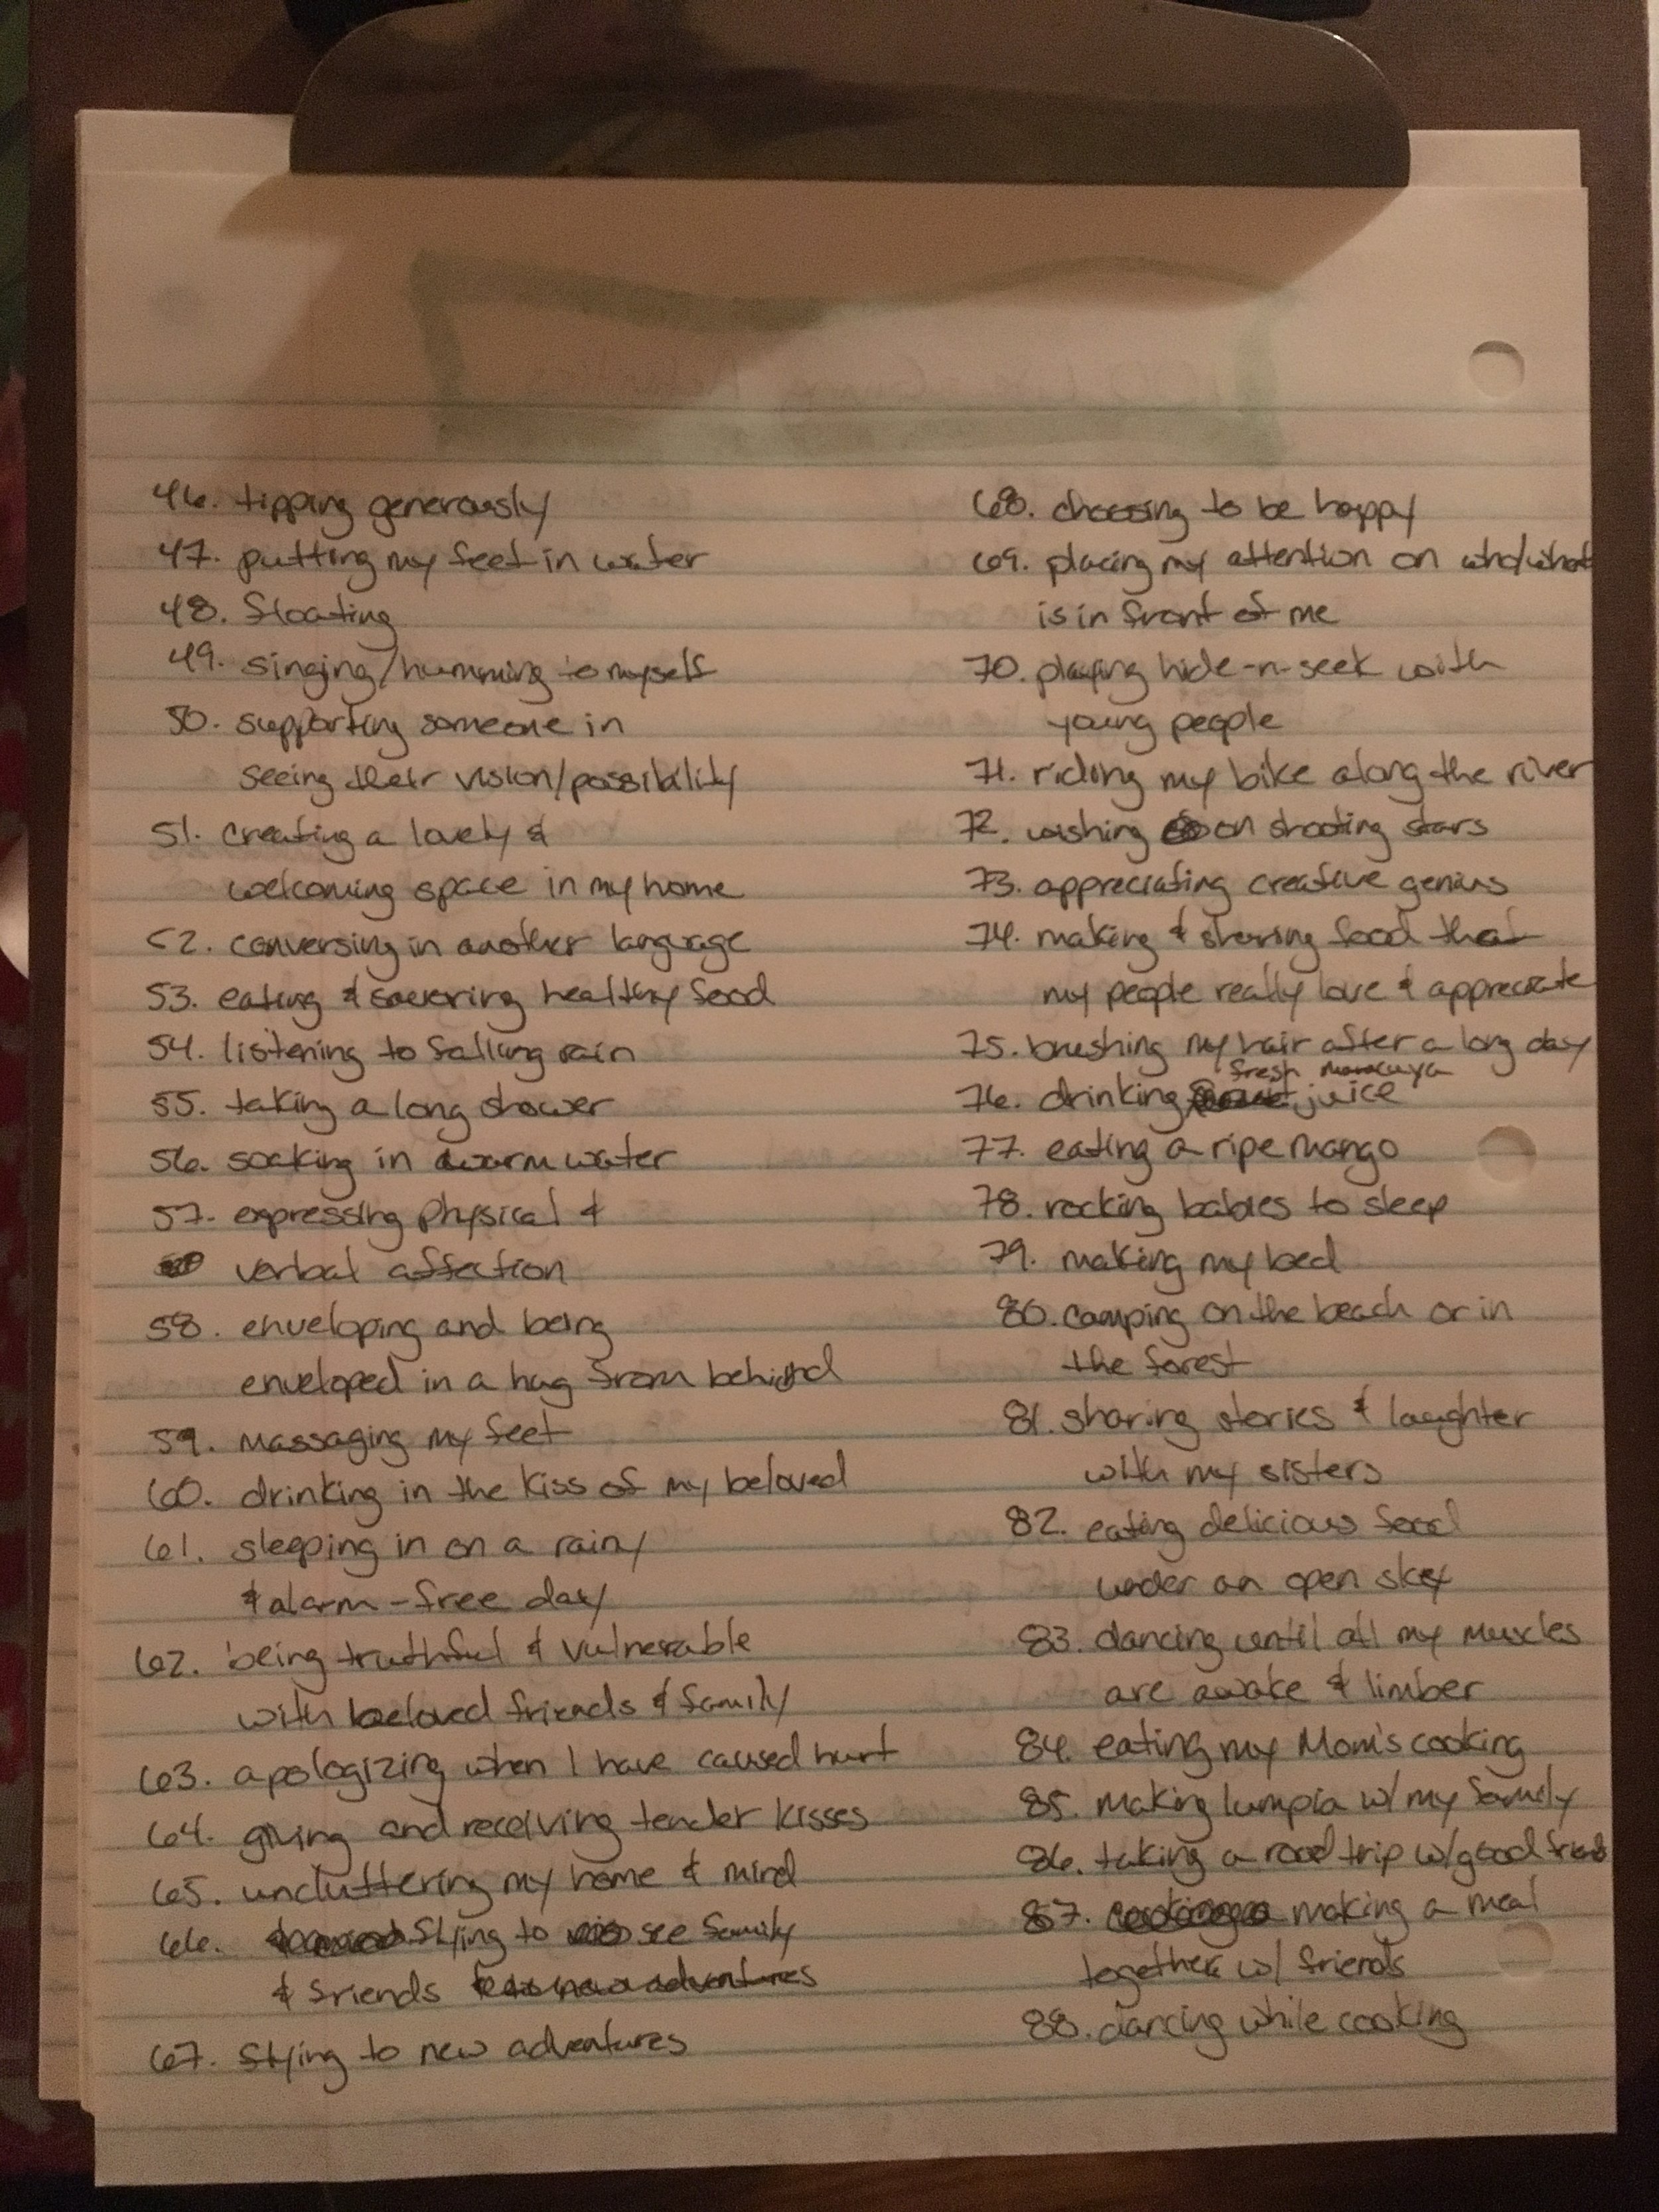 46. tipping generously
47. putting my feet in water
48. floating
49. singing/humming to myself
50. supporting someone in
seeing their vision/possibility
51. creating a lovely &
welcoming space in my home
52. conversing in another language
53. eating & savoring healthy food
54. listening to falling rain
55. taking a long shower
56. soaking in warm water
57. expressing physical &
verbal affection
58. enveloping and being
enveloped in a hug from behind
59. massaging my feet
60. drinking in the kiss of my beloved
61. sleeping in on a rainy
& alarm-free day
62. being truthful & vulnerable
with beloved friends & family
63. apologizing when I have caused hurt
64. giving and receiving tender kisses
65. uncluttering my home & mind
66. flying to see family
& friends
67. flying to new adventures
68. choosing to be happy
69. placing my attention on who/what
is in front of me
70. playing hide-n-seek with
young people
71. riding my bike along the river
72. wishing on shooting stars
73. appreciating creative genius
74. making & sharing food that
my people really love & appreciate
75. brushing my hair after a long day
76. drinking fresh maracuya juice
77. eating a ripe mango
78. rocking babies to sleep
79. making my bed
80. camping on the beach or in
the forest
81. sharing stories & laughter
with my sisters
82. eating delicious food
under an open sky
83. dancing until all my muscles
are awake & limber
84. eating my Mom's cooking
85. making lumpia w/ my family
86. taking a road trip w/good friends
87. making a meal
together w/ friends
88. dancing while cooking